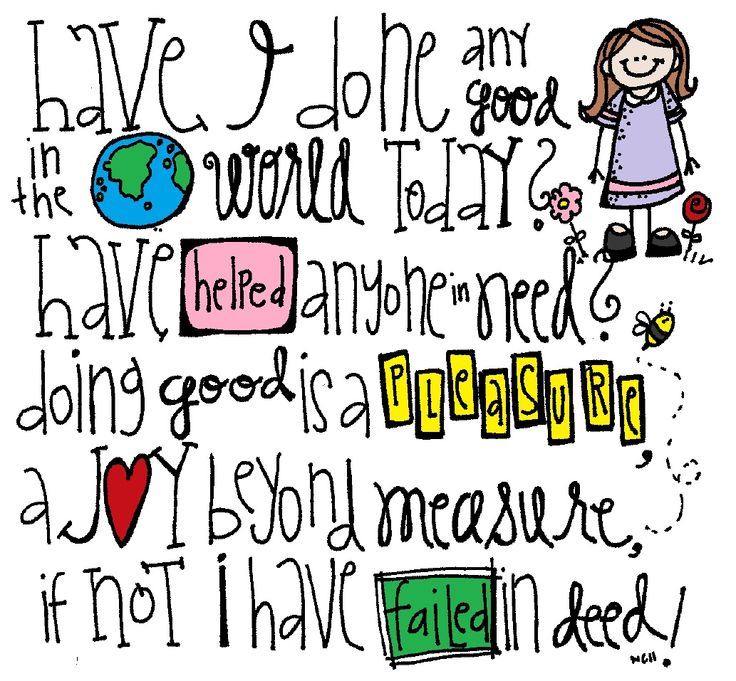 have I done any good
in the world today?
have helped anyone in need?
doing good is a pleasure,
a joy beyond measure,
if not i have failed in deed!